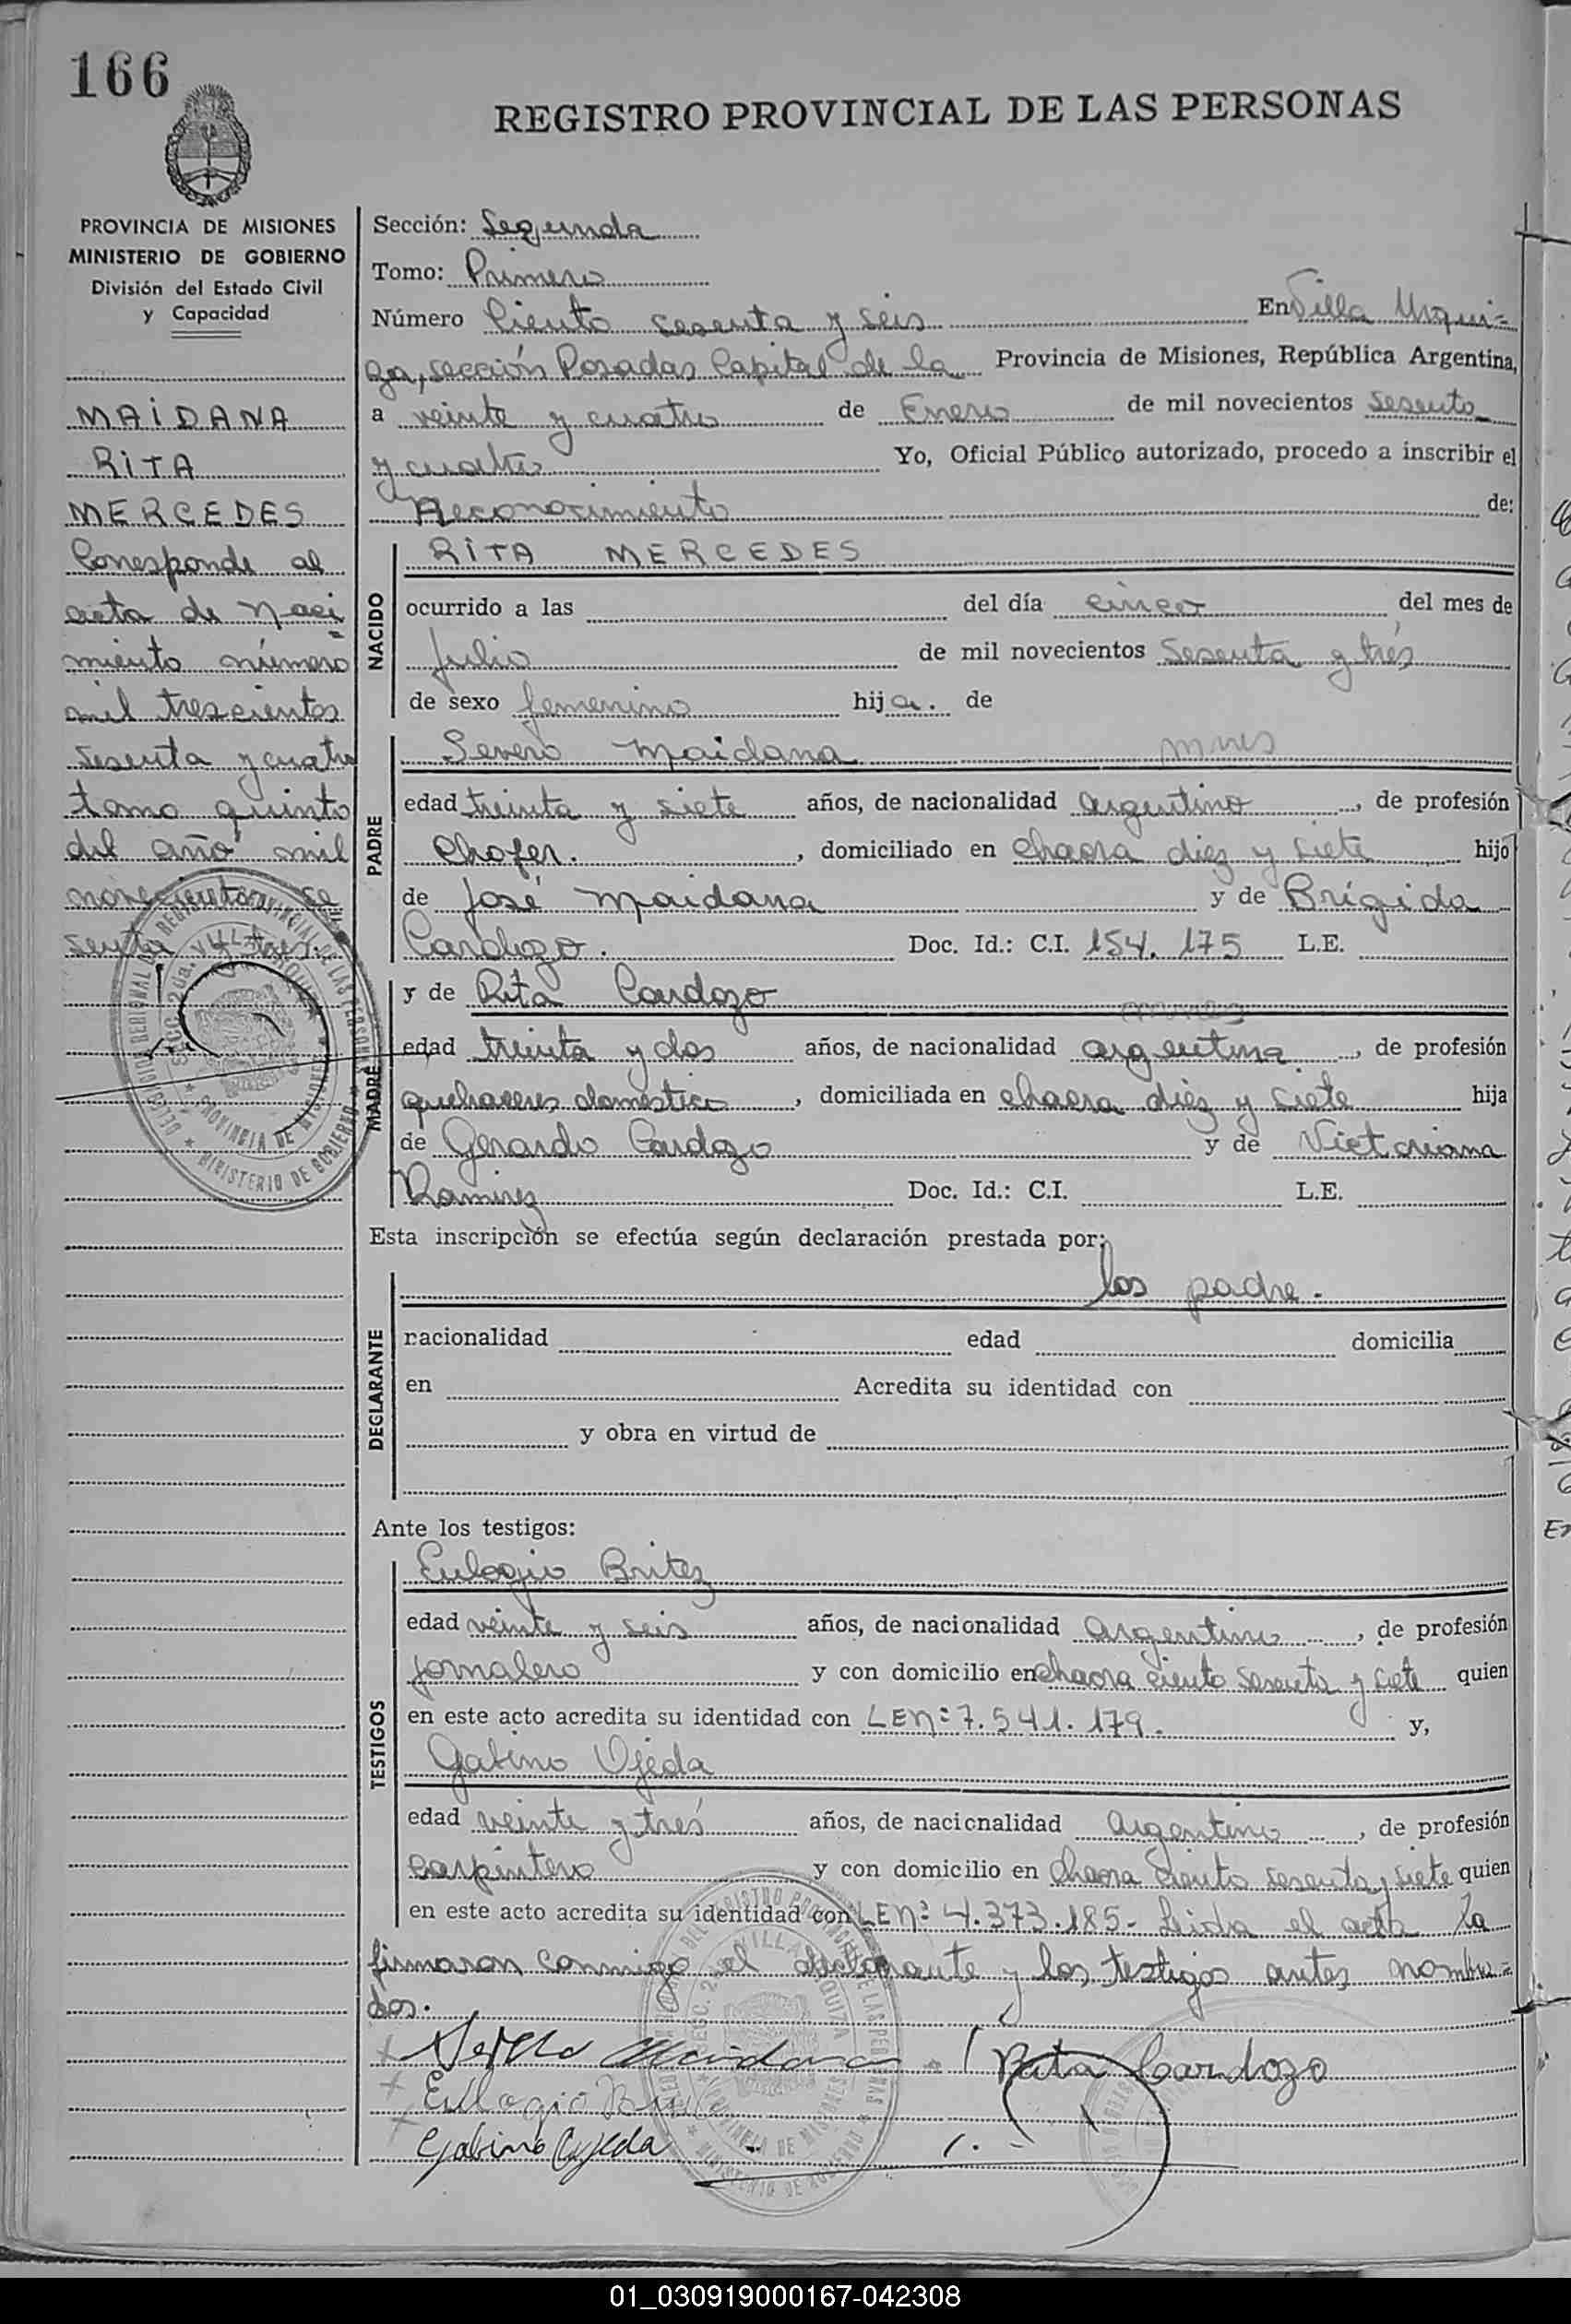 166
REGISTRO PROVINCIAL DE LAS PERSONAS
PROVINCIA DE MISIONES
MINISTERIO DE GOBIERNO
División del Estado Civil
y Capacidad
MAIDANA
RITA
MERCEDES
Corresponde al
acta de Naci
miento número
mil trescientos
sesenta y cuatro
tomo quinto
del año mil
novecientos se
senta y tres.
Sección: Segunda
Tomo: Primero
Número Ciento sesenta y seis En Villa Urqui=
za, sección Posadas Capital de la Provincia de Misiones, República Argentina,
a veinte y cuatro de Enero de mil novecientos sesenta
y cuatro Yo, Oficial Público autorizado, procedo a inscribir el
Reconocimiento de:
NACIDO
RITA MERCEDES
ocurrido a las del día cinco del mes de
Julio de mil novecientos sesenta y trés
de sexo femenino hija. de
PADRE
Severo Maidana mnes
edad treinta y siete años, de nacionalidad argentino, de profesión
Chofer. , domiciliado en chacra diez y siete hijo
de José Maidana y de Brígida
Cardozo. Doc. Id.: C.I. 154.175 L.E.
MADRE
y de Rita Cardozo
edad treinta y dos años, de nacionalidad argentina, de profesión
quehaceres doméstico, domiciliada en chacra diez y siete hija
de Gerardo Cardozo y de Victoriana
Ramirez Doc. Id.: C.I. L.E.
Esta inscripción se efectúa según declaración prestada por:
los padre.
DECLARANTE
nacionalidad edad domicilia
en Acredita su identidad con
y obra en virtud de
Ante los testigos:
TESTIGOS
Eulogio Britez
edad veinte y seis años, de nacionalidad Argentino, de profesión
Jornalero y con domicilio en chacra ciento sesenta y siete quien
en este acto acredita su identidad con LENº 7.541.179. y,
Gabino Ojeda
edad veinte y trés años, de nacionalidad Argentino, de profesión
Carpintero y con domicilio en chacra ciento sesenta y siete quien
en este acto acredita su identidad con LENº 4.373.185.- Leida el acta la
firmaron conmigo el declarante y los testigos antes nombra=
dos.
Maidana Rita Cardozo
Eulogio
Gabino Ojeda
01_030919000167-042308